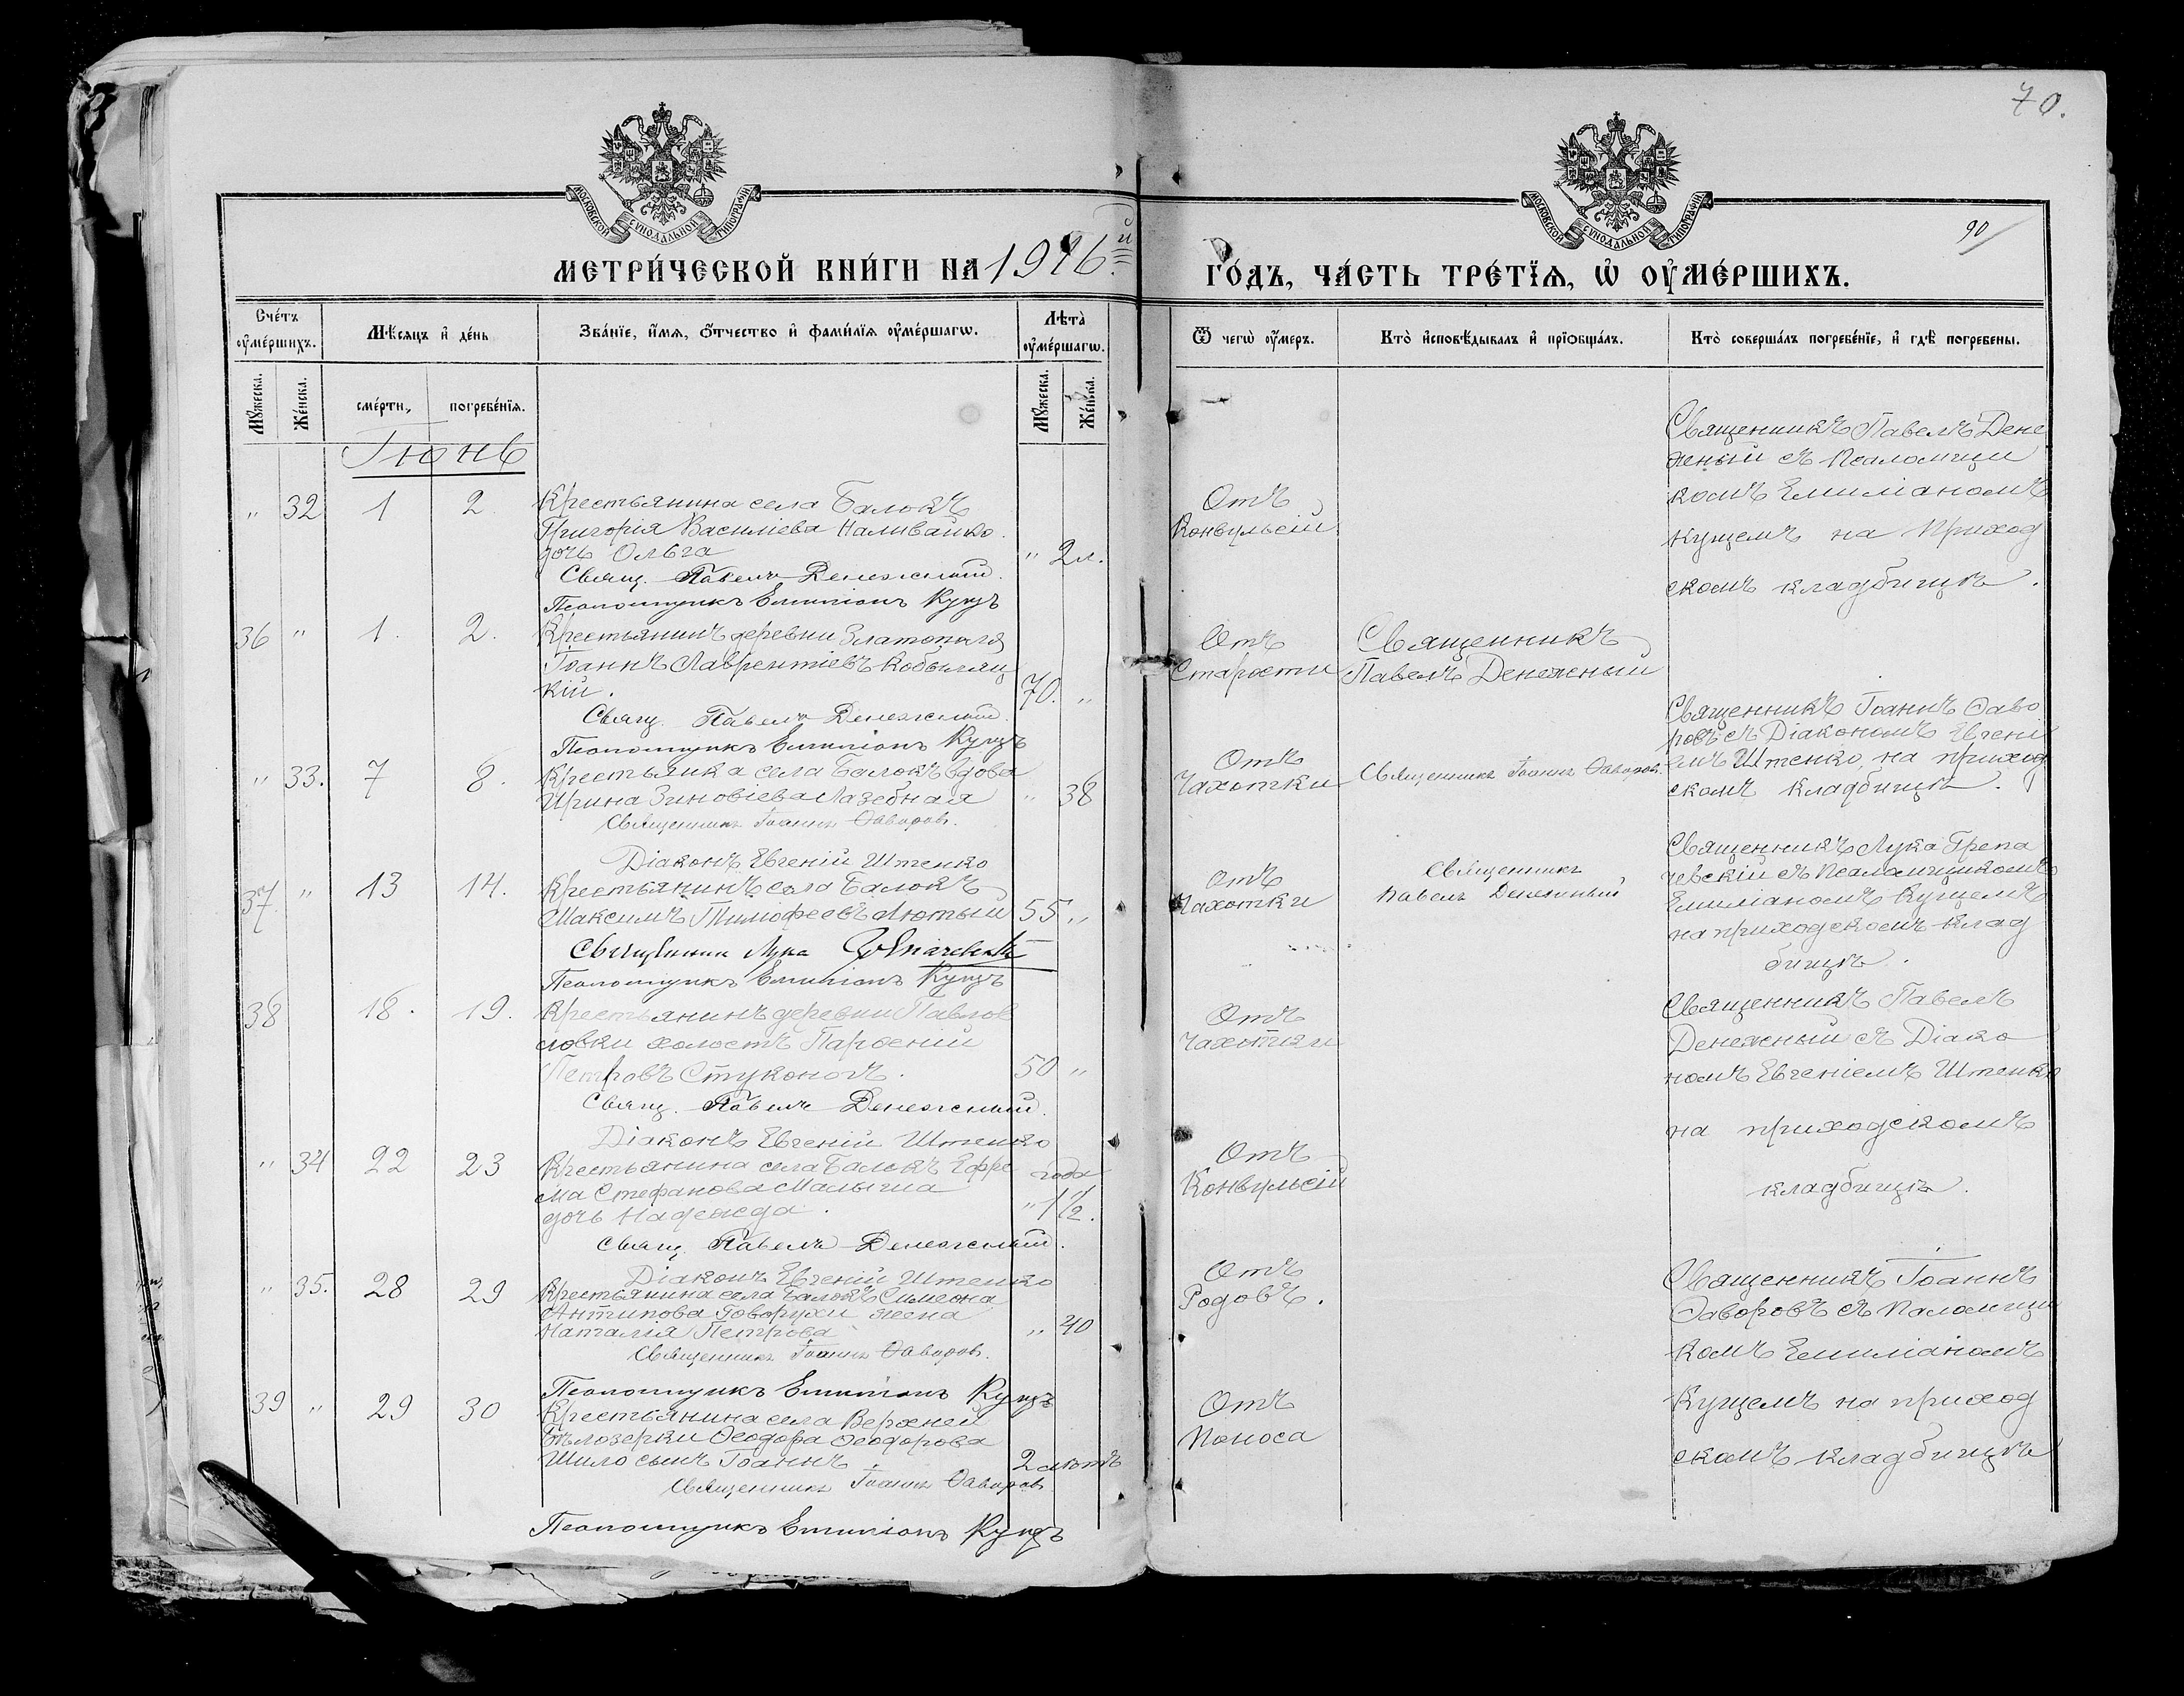 70.
МОСКОВСКОЙ СѴНОДАЛЬНОЙ ТИПОГРАФІИ
МОСКОВСКОЙ СѴНОДАЛЬНОЙ ТИПОГРАФІИ
90
МЕТРИ́ЧЕСКОЙ КНИ́ГИ НА 1916й
ГО́ДЪ, ЧА́СТЬ ТРЕ́ТЇѦ, Ѡ҆ ОУ҆МЕ́РШИХЪ.
Сче́тъ оу҆ме́ршихъ.
Мѣ́сяцъ и҆ де́нь
Зва́нїе, и҆́мя, ѻ҆́тчество и҆ фами́лїя оу҆ме́ршагѡ.
Лѣ́та оу҆ме́ршагѡ.
Ѿ чегѡ̀ оу҆́меръ.
Кто̀ и҆сповѣ́дывалъ и҆ прїѻбща́лъ.
Кто̀ соверша́лъ погребе́нїе, и҆ гдѣ̀ погребены.
Му́жеска.
Же́нска.
сме́рти,
погребе́нїя.
Му́жеска.
Же́нска.
Іюнь
" 32 1 2. Крестьянина села Балокъ
Григорія Василіева Наливайко
дочь Ольга
" 2л.
Свящ. Павелъ Денежный.
Псаломщикъ Емиліанъ Кущъ
Отъ
Конвульсій
Священникъ Павелъ Дене
жный съ Псаломщи
комъ Емиліаномъ
Кущемъ на приход
скомъ кладбищѣ.
36 " 1. 2. Крестьянинъ деревни Златополя
Іоаннъ Лаврентіевъ Кобыляц
кій.
70. "
Свящ. Павелъ Денежный.
Псаломщикъ Емиліанъ Кущъ
Отъ
Старости
Священникъ
Павелъ Денежный
" 33. 7 8. Крестьянка села Балокъ вдова
Ирина Зиновіева Лазебная
" 38
Священникъ Іоаннъ Ѳаворовъ.
Діаконъ Евгеній Штенко
Отъ
Чахотки
Священникъ Іоаннъ Ѳаворовъ.
Священникъ Іоаннъ Ѳаво
ровъ съ Діакономъ Евгені
емъ Штенко, на приход
скомъ кладбищѣ.
37. " 13 14. Крестьянинъ села Балокъ
Максимъ Тимофеевъ Лютый
55 "
Священникъ Лука
Псаломщикъ Емиліанъ Кущъ
Отъ
Чахотки
Священникъ
Павелъ Денежный
Священникъ Лука Грепа
чевскій съ Псаломщикомъ
Емиліаномъ Кущемъ
на приходскомъ клад
бищѣ.
38 18. 19. Крестьянинъ деревни Павлов
ловки холостъ Парѳеній
Петровъ Стуконогъ.
50 "
Свящ. Павелъ Денежный.
Діаконъ Евгеній Штенко
Отъ
Чахотки
Священникъ Павелъ
Денежный съ Діако
номъ Евгеніемъ Штенко
на приходскомъ
кладбищѣ.
" 34 22 23 Крестьянина села Балокъ Ефре
ма Стефанова Малыгиа
дочь Надежда.
года
" 1½.
Свящ. Павелъ Денежный.
Діаконъ Евгеній Штенко
Отъ
Конвульсій
" 35. 28 29 Крестьянина села Балокъ Симеона
Антипова Говорухи жена
Наталія Петрова
" 40
Священникъ Іоаннъ Ѳаворовъ.
Псаломщикъ Емиліанъ Кущъ
Отъ
Родовъ.
Священникъ Іоаннъ
Ѳаворовъ съ Псаломщи
комъ Емиліаномъ
Кущемъ на приход
скомъ кладбищѣ
39 " 29 30 Крестьянина села Верхней
Бѣлозерки Ѳеодора Ѳеодорова
Шило сынъ Іоаннъ
2 лѣтъ
Священникъ Іоаннъ Ѳаворовъ
Псаломщикъ Емиліанъ Кущъ
Отъ
Поноса